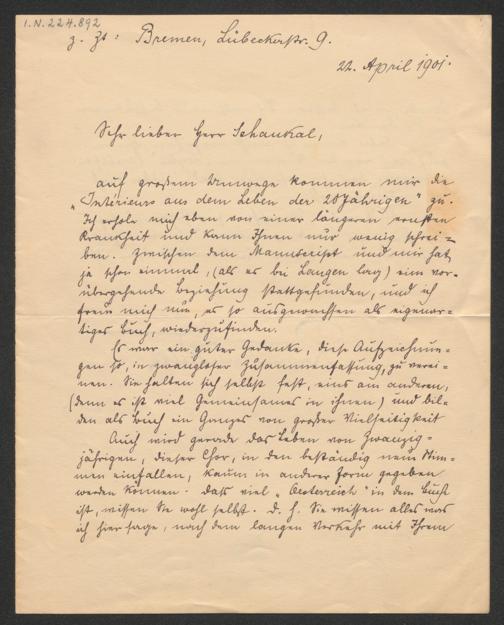 I.N. 224.892
z. Zt: Bremen, Lübeckerstr. 9.
22. April 1901.
Sehr lieber Herr Schaukal,
auf großem Umwege kommen mir die
„Intérieurs aus dem Leben der 20Jährigen" zu.
Ich erhole mich eben von einer längeren ernsten
Krankheit und kann Ihnen nur wenig schrei=
ben. Zwischen dem Manuscript und mir hat
ja schon einmal, (als es bei Langen lag) eine vor-
übergehende Beziehung stattgefunden, und ich
freue mich nun, es so ausgewachsen als eigenar-
tiges Buch, wiederzufinden.
Es war ein guter Gedanke, diese Aufzeichnun=
gen so, in zwangloser Zusammenfassung, zu verei=
nen. Sie halten sich selbst fest, eins am anderen,
(denn es ist viel Gemeinsames in ihnen) und bil=
den als Buch ein Ganzes von großer Vielseitigkeit
Auch wird gerade das Leben von Zwanzig=
jährigen, dieser Chor, in den beständig neue Stim=
men einfallen, kaum in anderer Form gegeben
werden können. Daß viel „Oesterreich" in dem Buch
ist, wissen Sie wohl selbst. D. h. Sie wissen alles was
ich hier sage, nach dem langen Verkehr mit Ihrem